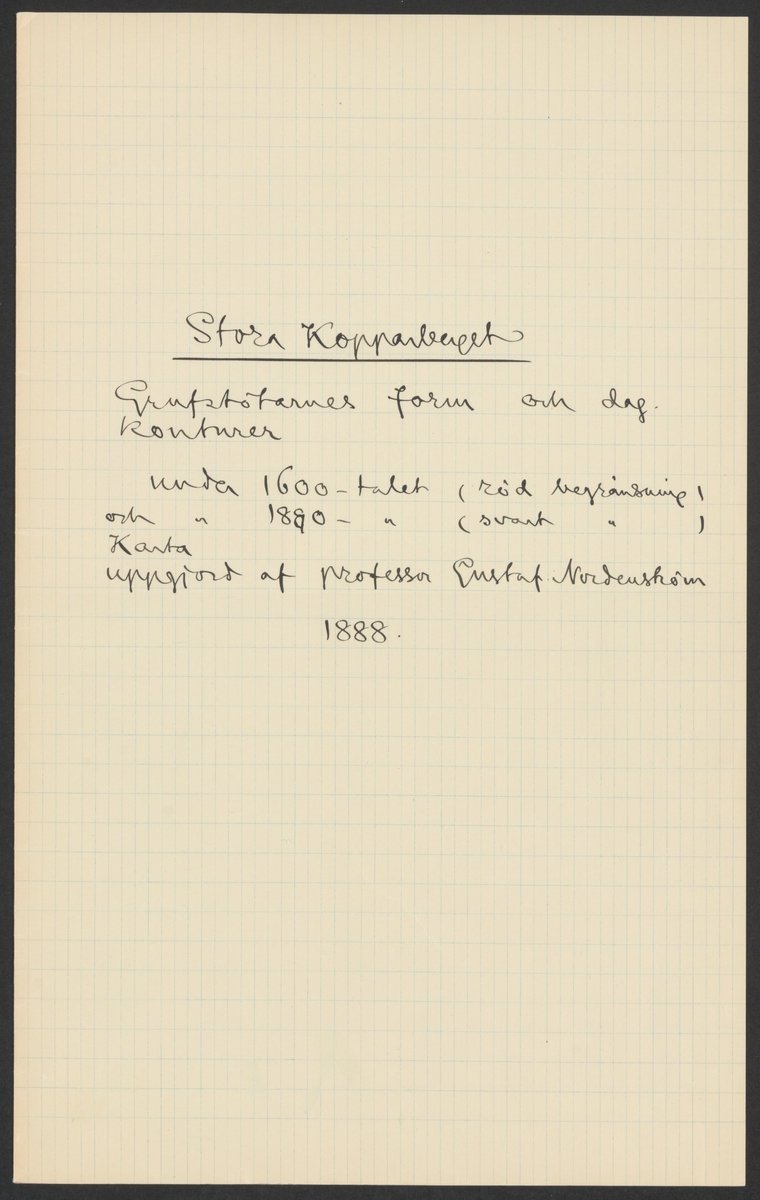 Stora Kopparberget
Grufstötarnes form och dag.
konturer
under 1600-talet (röd begränsning)
och " 1890- " (svart " )
Karta
uppgjord af professor Gustaf Nordenström
1888.